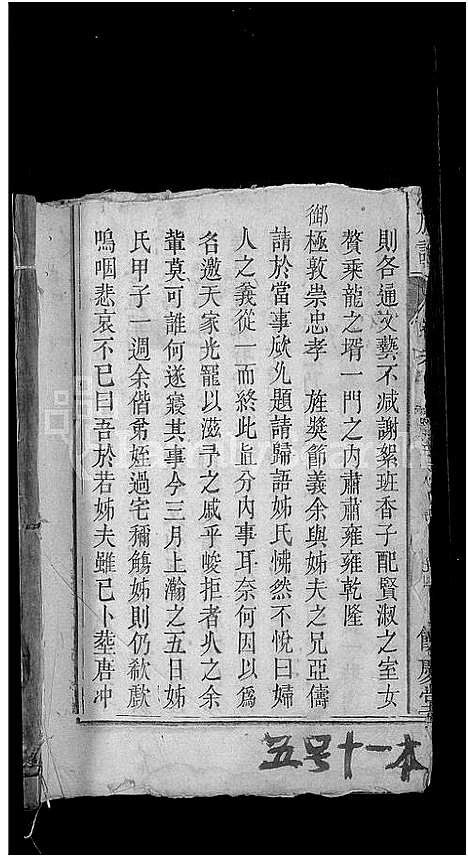 則各通文藝不减謝絮班香子配賢淑之室女
贅乘龍之壻一門之內肅肅雍雍乾隆
御極敦崇忠孝 旌獎節義余與姊夫之兄亞儔
請於當事欣允題請歸語姊氏怫然不悅曰婦
人之義從一而終此直分內事耳奈何因以爲
名邀天家光寵以滋予之戚乎峻拒者久之余
輩莫可誰何遂寢其事今三月上瀚之五日姊
氏甲子一週余偕弟姪過宅稱觴姊則仍欷歔
嗚咽悲哀不已曰吾於若姊夫雖已卜葬唐冲
餘慶堂
五号十一本